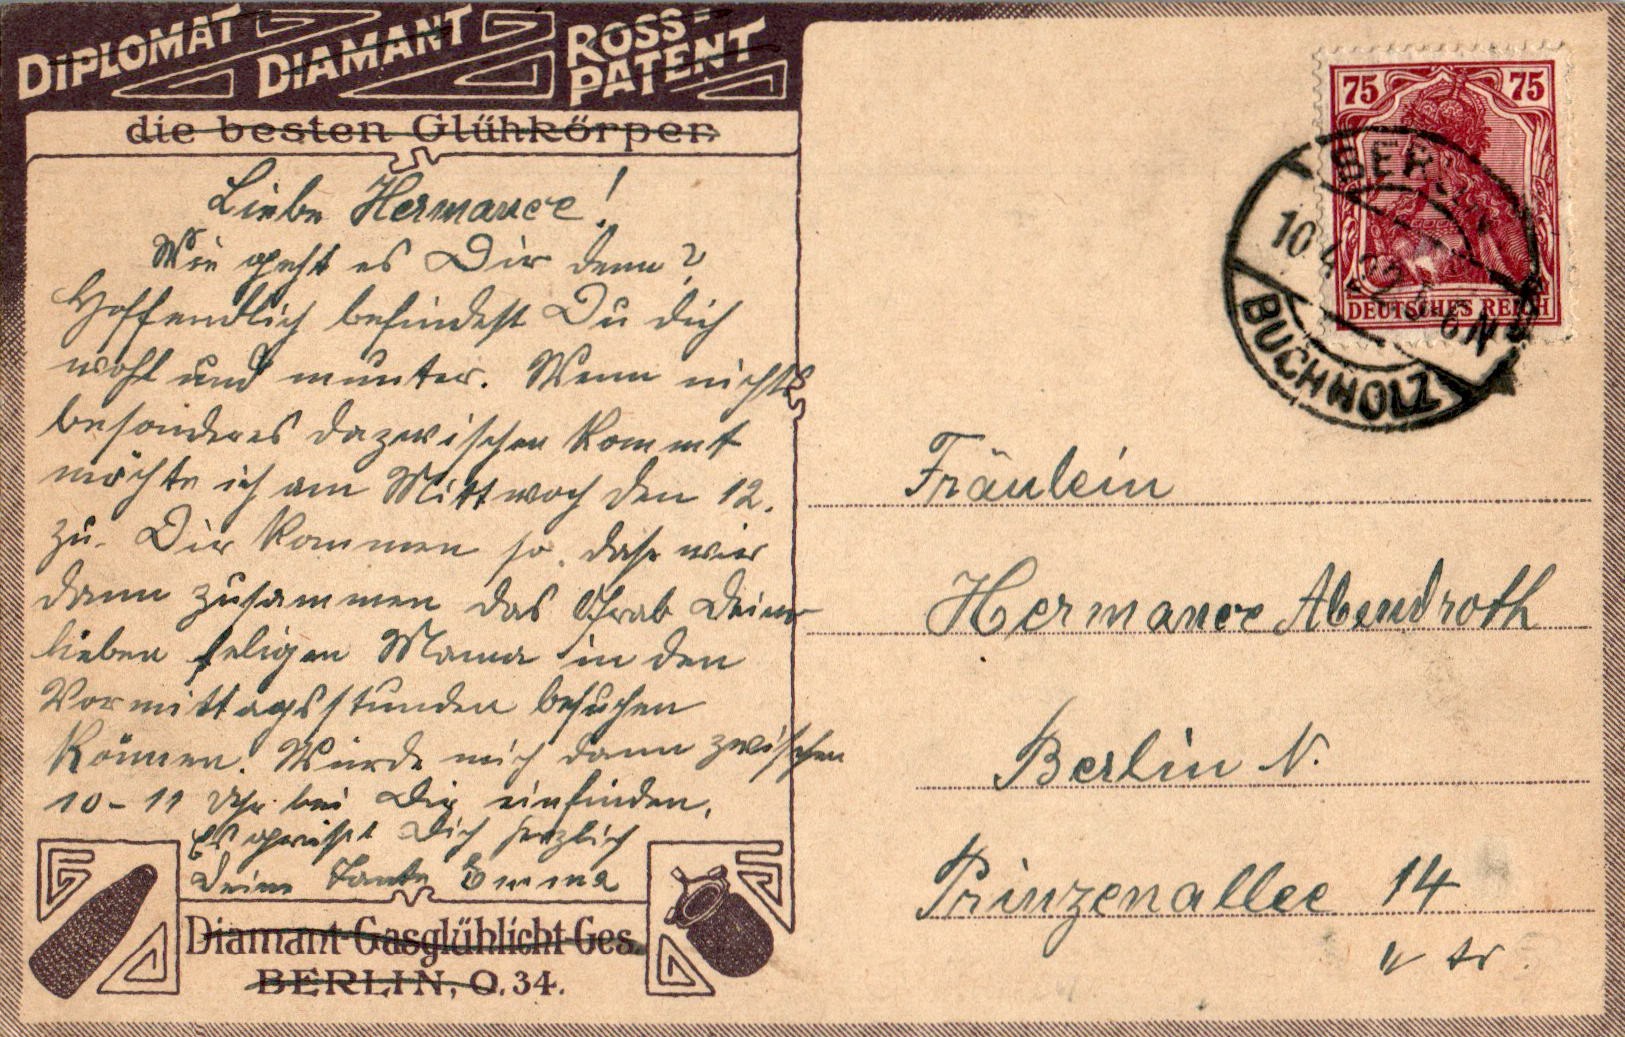 DIPLOMAT DIAMANT ROSS=
PATENT
die besten Glühkörper.
Liebe Hermance!
Wie geht es Dir denn?
Hoffendlich befindest Du dich
wohl und munter. Wenn nichts
besonderes dazwischen kommt
möchte ich am Mittwoch den 12.
zu Dir kommen so dass wir
dann zusammen das Grab Deiner
lieben seligen Mama in den
Vormittagsstunden besuchen
können. Würde mich dann zwischen
10-11 Uhr bei Dir einfinden.
Es grüsst Dich herzlich
Deine Tante Emma
Diamant-Gasglühlicht-Ges.
BERLIN, O. 34.
75 75
DEUTSCHES REICH
BERLIN
10.4.22 5-6 N
BUCHHOLZ
Fräulein
Hermance Abendroth
Berlin N.
Prinzenallee 14
II tr.